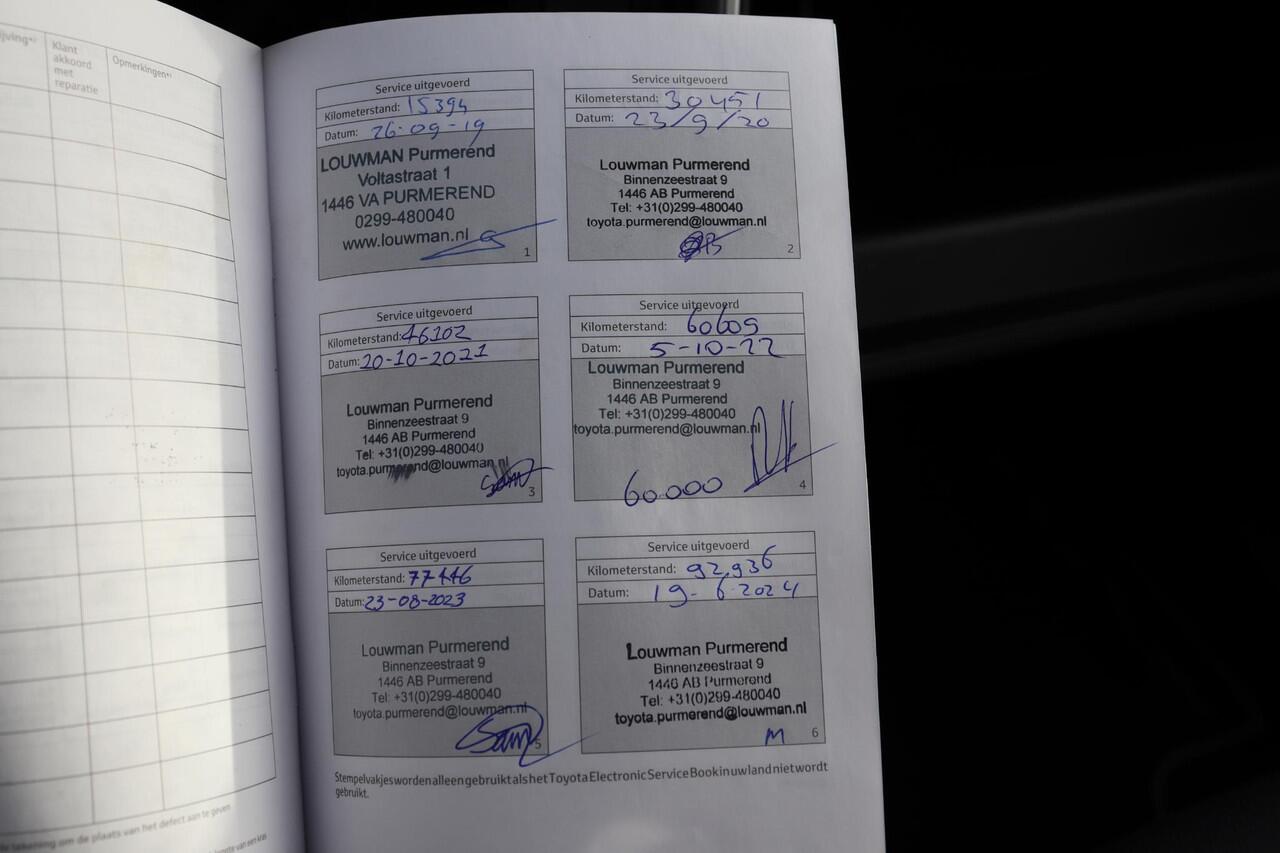 Klant
akkoord
met
reparatie
Opmerkingen
Service uitgevoerd
Kilometerstand: 15394
Datum: 26-09-19
LOUWMAN Purmerend
Voltastraat 1
1446 VA PURMEREND
0299-480040
www.louwman.nl
1
Service uitgevoerd
Kilometerstand: 30451
Datum: 23/9/20
Louwman Purmerend
Binnenzeestraat 9
1446 AB Purmerend
Tel: +31(0)299-480040
toyota.purmerend@louwman.nl
2
Service uitgevoerd
Kilometerstand: 46102
Datum: 20-10-2021
Louwman Purmerend
Binnenzeestraat 9
1446 AB Purmerend
Tel: +31(0)299-480040
toyota.purmerend@louwman.nl
3
Service uitgevoerd
Kilometerstand: 60609
Datum: 5-10-22
Louwman Purmerend
Binnenzeestraat 9
1446 AB Purmerend
Tel: +31(0)299-480040
toyota.purmerend@louwman.nl
60.000
4
Service uitgevoerd
Kilometerstand: 77446
Datum: 23-08-2023
Louwman Purmerend
Binnenzeestraat 9
1446 AB Purmerend
Tel: +31(0)299-480040
toyota.purmerend@louwman.nl
Sam
5
Service uitgevoerd
Kilometerstand: 92,936
Datum: 19-6-2024
Louwman Purmerend
Binnenzeestraat 9
1446 AB Purmerend
Tel: +31(0)299-480040
toyota.purmerend@louwman.nl
M
6
Stempelvakjes worden alleen gebruikt als het Toyota Electronic Service Book in uw land niet wordt
gebruikt.
tekening om de plaats van het defect aan te geven
van een kras